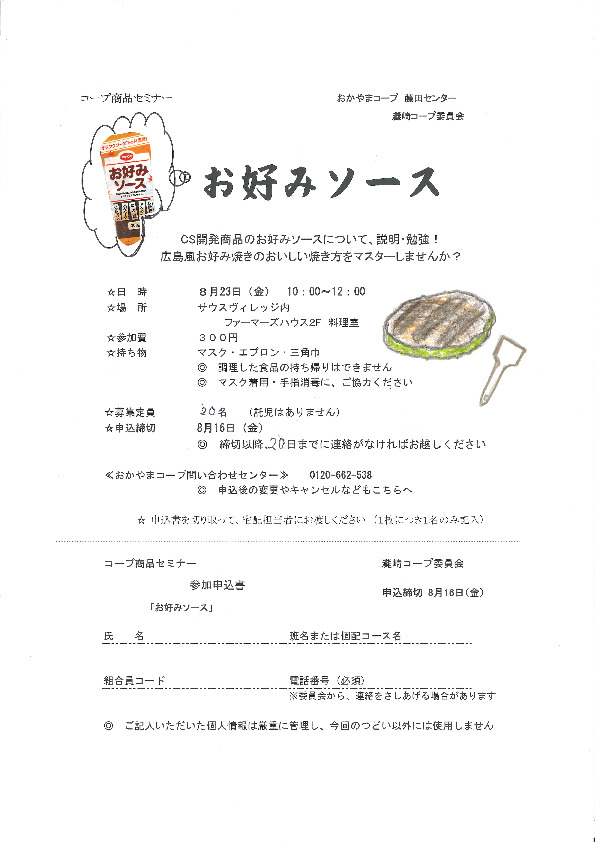 コープ商品セミナー
おかやまコープ 藤田センター
灘崎コープ委員会
お好み
ソース
お好みソース
CS開発商品のお好みソースについて、説明・勉強！
広島風お好み焼きのおいしい焼き方をマスターしませんか？
☆日 時 8月23日（金） 10：00～12：00
☆場 所 サウスヴィレッジ内
ファーマーズハウス2F 料理室
☆参加費 300円
☆持ち物 マスク・エプロン・三角巾
◎ 調理した食品の持ち帰りはできません
◎ マスク着用・手指消毒に、ご協力ください
☆募集定員 20名 （託児はありません）
☆申込締切 8月16日（金）
◎ 締切以降、20日までに連絡がなければお越しください
≪おかやまコープ問い合わせセンター≫ 0120-662-538
◎ 申込後の変更やキャンセルなどもこちらへ
☆ 申込書を切り取って、宅配担当者にお渡しください （1枚につき1名のみ記入）
コープ商品セミナー
灘崎コープ委員会
参加申込書
申込締切 8月16日（金）
「お好みソース」
氏 名 班名または個配コース名
組合員コード 電話番号（必須）
※委員会から、連絡をさしあげる場合があります
◎ ご記入いただいた個人情報は厳重に管理し、今回のつどい以外には使用しません